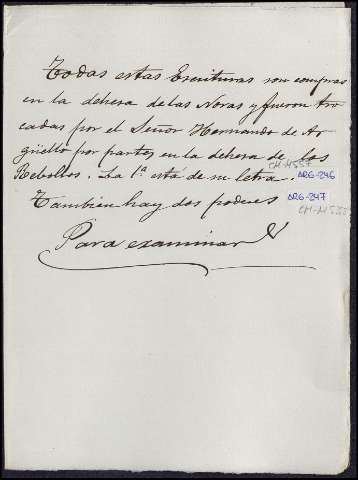 Todas estas Escrituras son compras
en la dehesa de las Noras y fueron tro
cadas por el Señor Hernando de Ar
güello por partes en la dehesa de los
Rebollos. La 1ª está de su letra.
ARG-246
Tambien hay dos poderes
ARG-247
Para examinar